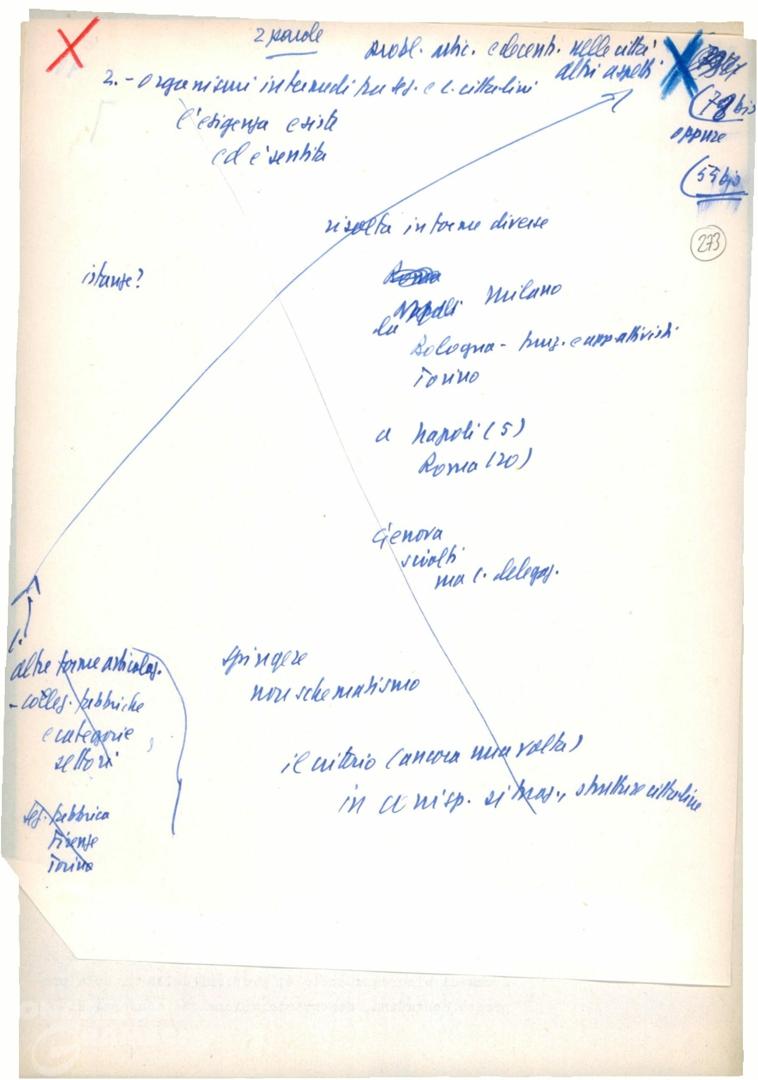 2 parole
probl. artic. e decent. nelle città
altri aspetti
2. - organismi intermedi tra sez. e c. cittadini
(78 bis
oppure
(55 bis
l'esigenza esiste
ed è sentita
273
risolta in forme diverse
istanze?
Roma
Napoli Milano
da
Bologna - funz. e app. attivisti
Torino
a Napoli (5)
Roma (20)
Genova
sciolti
ma c. delegaz.
1.
altre forme articolaz.
- colleg. fabbriche
e categorie
settori
sez. fabbrica
Firenze
Torino
spingere
non schematismo
il criterio (ancora una volta)
in c. strutture cittadine